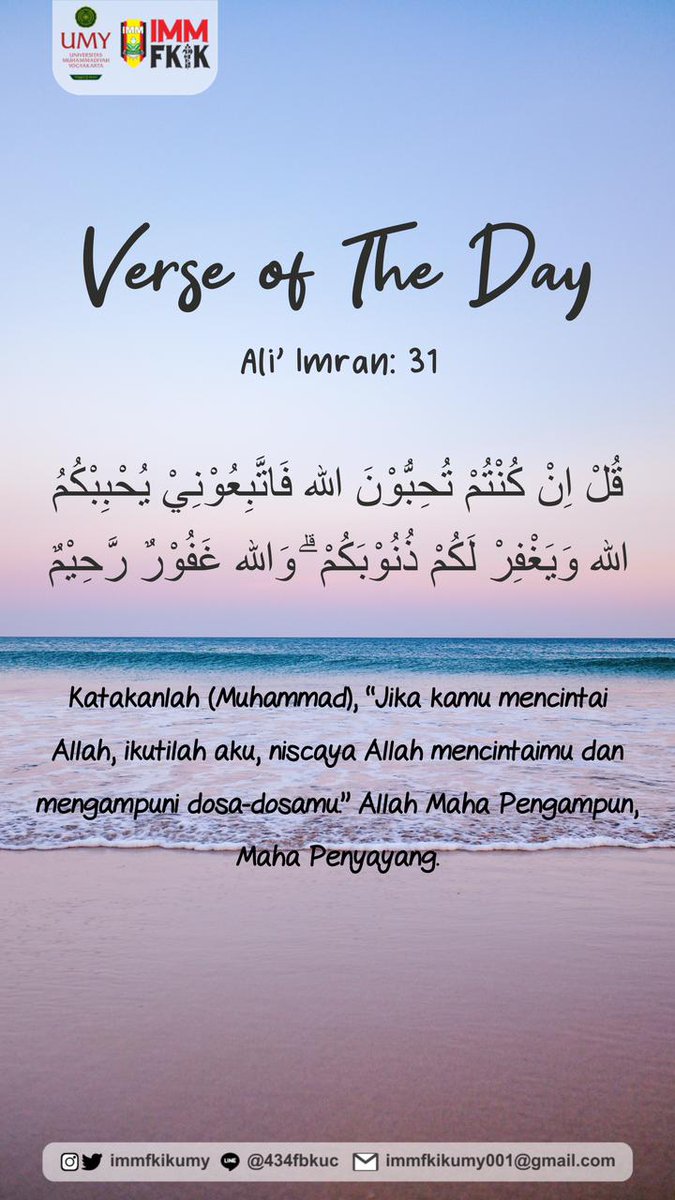 UMY
UNIVERSITAS
MUHAMMADIYAH
YOGYAKARTA
IMM
IMM
FKIK
Verse of The Day
Ali' Imran: 31
قُلْ اِنْ كُنْتُمْ تُحِبُّوْنَ الله فَاتَّبِعُوْنِيْ يُحْبِبْكُمُ
الله وَيَغْفِرْ لَكُمْ ذُنُوْبَكُمْ ۗ وَالله غَفُوْرٌ رَّحِيْمٌ
Katakanlah (Muhammad), “Jika kamu mencintai
Allah, ikutilah aku, niscaya Allah mencintaimu dan
mengampuni dosa-dosamu.” Allah Maha Pengampun,
Maha Penyayang.
immfkikumy @434fbkuc immfkikumy001@gmail.com